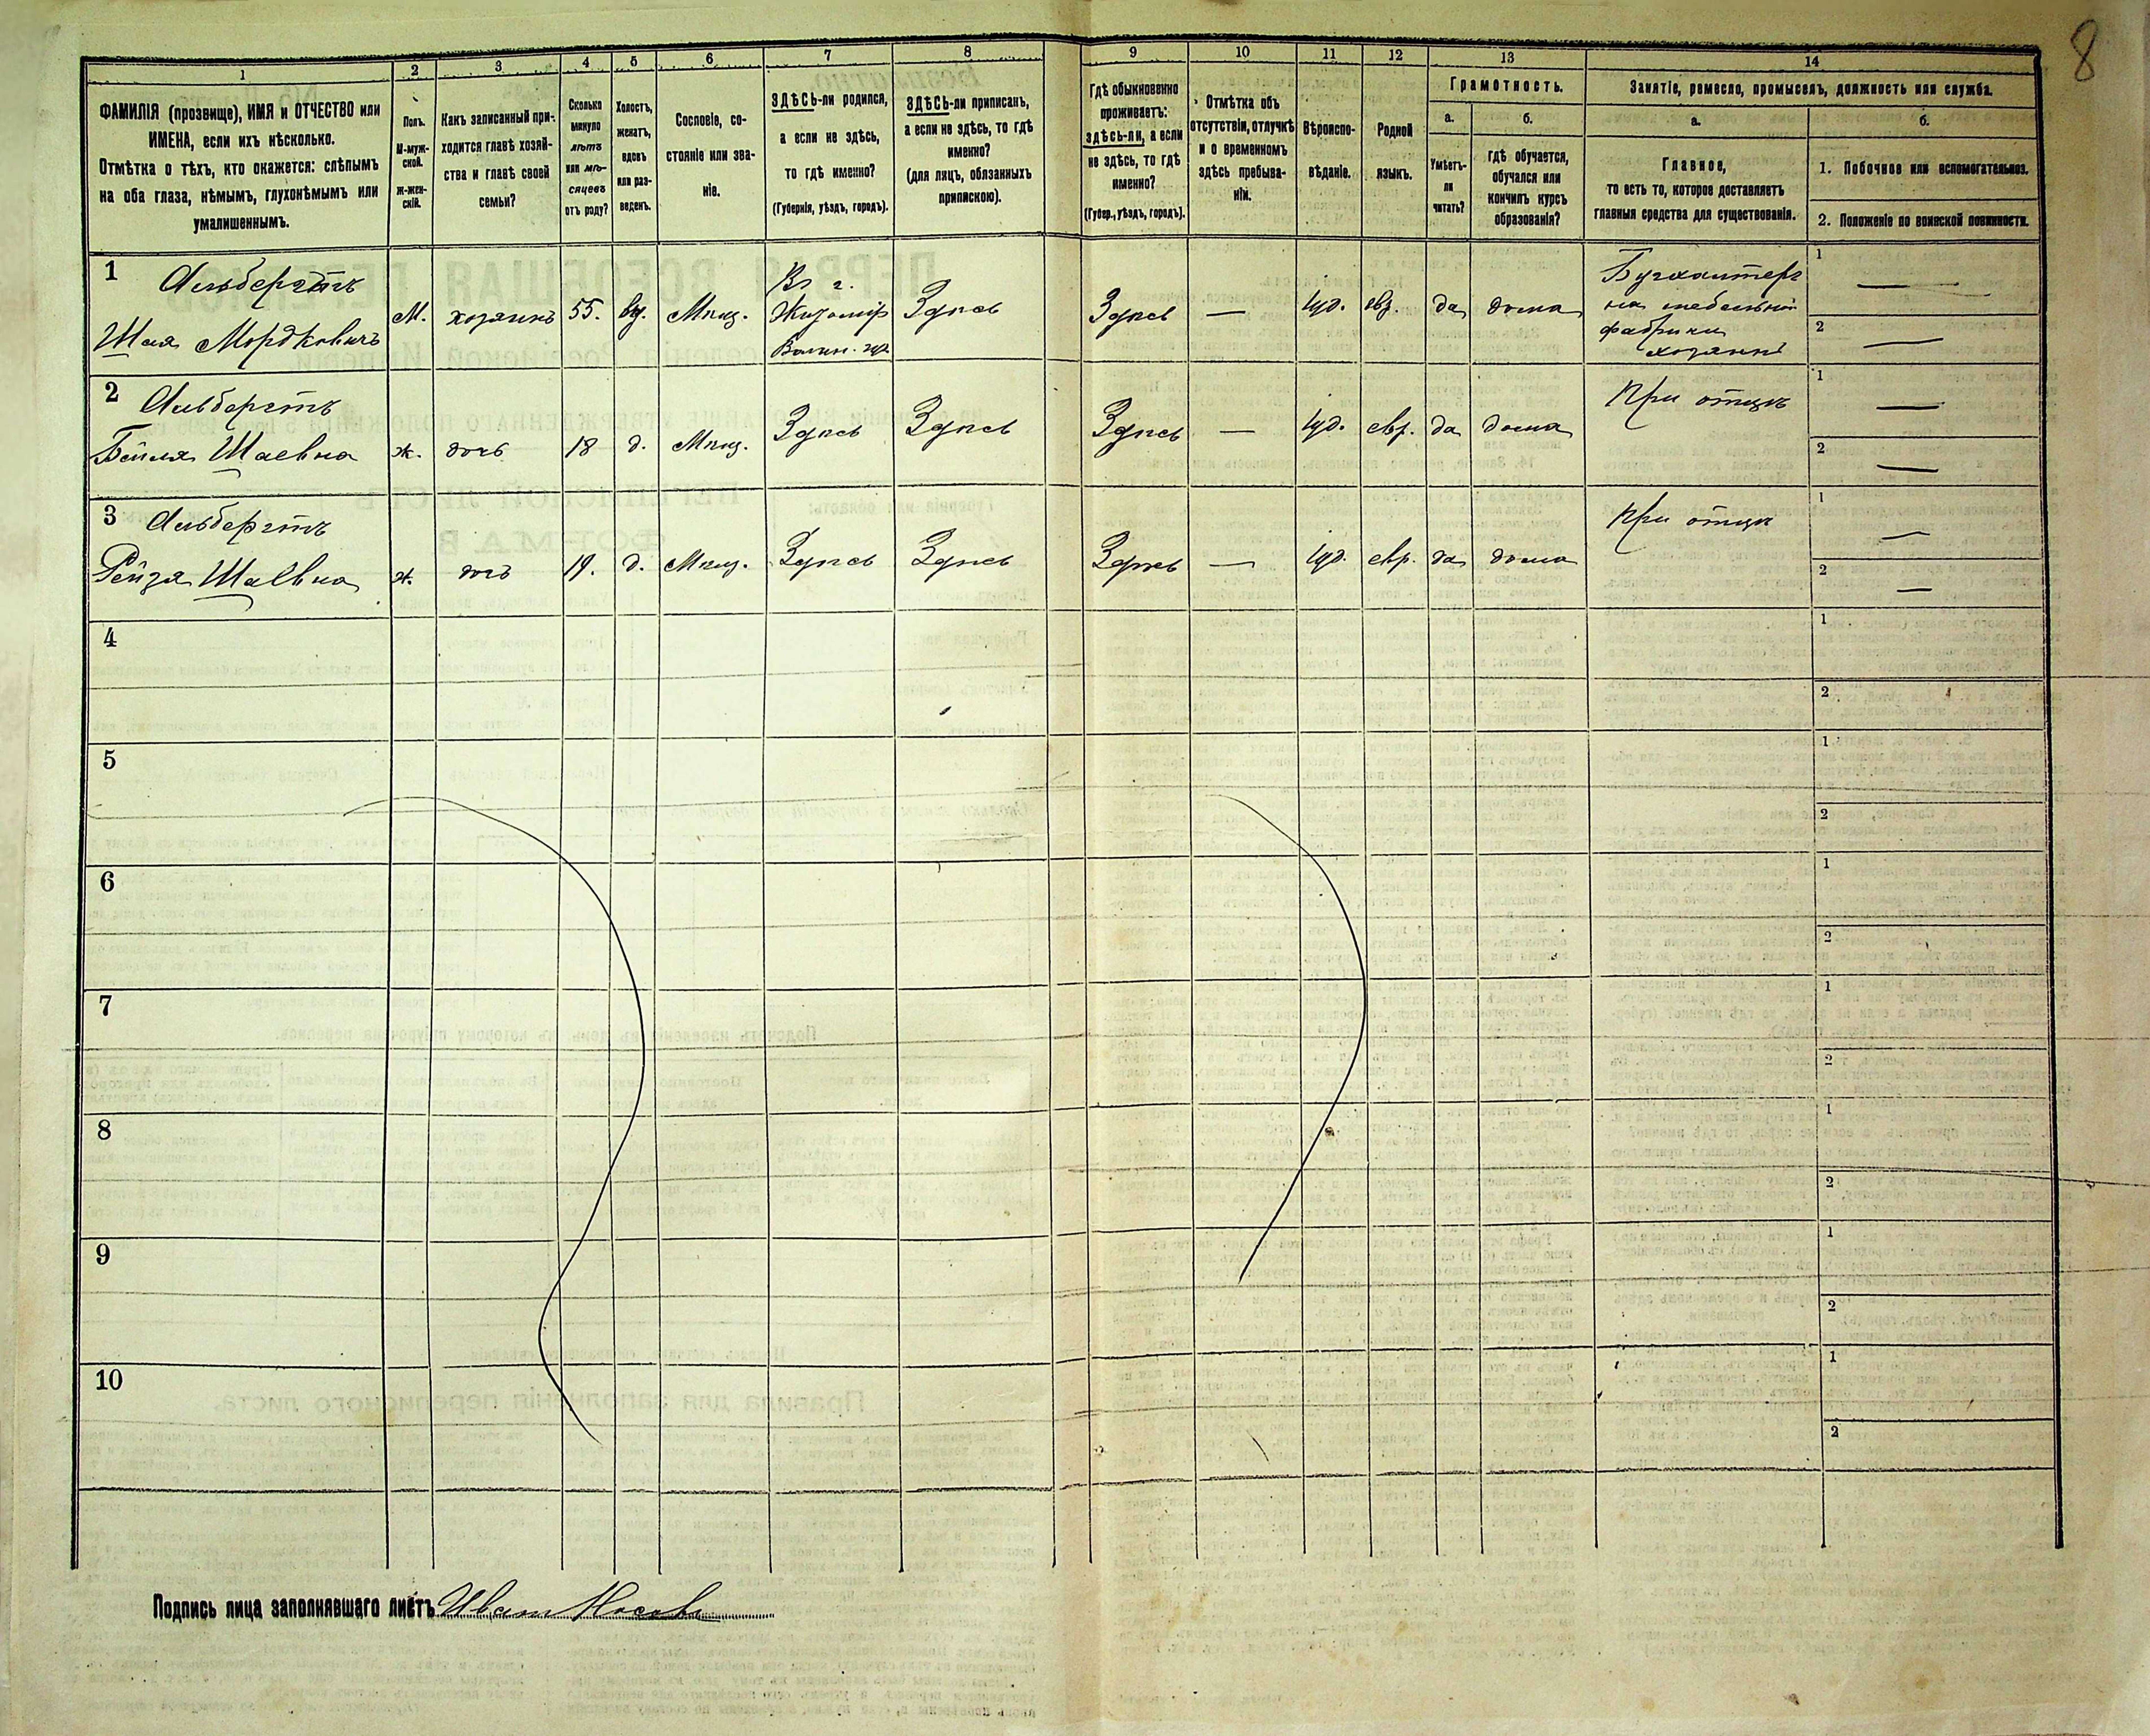 8
1
2
3
4
5
6
7
8
9
10
11
12
13
14
ФАМИЛІЯ (прозвище), ИМЯ и ОТЧЕСТВО или
ИМЕНА, если ихъ нѣсколько.
Отмѣтка о тѣхъ, кто окажется: слѣпымъ
на оба глаза, нѣмымъ, глухонѣмымъ или
умалишеннымъ.
Полъ.
М-муж-
ской.
ж-жен-
скій.
Какъ записанный при-
ходится главѣ хозяй-
ства и главѣ своей
семьи?
Сколько
минуло
лѣтъ
или мѣ-
сяцевъ
отъ роду?
Холостъ,
женатъ,
вдовъ
или раз-
веденъ.
Сословіе, со-
стояніе или зва-
ніе.
ЗДѢСЬ-ли родился,
а если не здѣсь,
то гдѣ именно?
(Губернія, уѣздъ, городъ).
ЗДѢСЬ-ли приписанъ,
а если не здѣсь, то гдѣ
именно?
(для лицъ, обязанныхъ
припискою).
Гдѣ обыкновенно
проживаетъ:
здѣсь-ли, а если
не здѣсь, то гдѣ
именно?
(Губер., уѣздъ, городъ).
Отмѣтка объ
отсутствіи, отлучкѣ
и о временномъ
здѣсь пребыва-
ніи.
Вѣроиспо-
вѣданіе.
Родной
языкъ.
Грамотность.
а.
Умѣетъ-
ли
читать?
б.
Гдѣ обучается,
обучался или
кончилъ курсъ
образованія?
Занятіе, ремесло, промыселъ, должность или служба.
а.
Главное,
то есть то, которое доставляетъ
главныя средства для существованія.
б.
1. Побочное или вспомогательное.
2. Положеніе по воинской повинности.
1
Альбергтъ
Шая Мордковичъ
М.
хозяинъ
55.
вд.
Мѣщ.
Въ г.
Житомір
Волын. губ.
Здѣсь
Здѣсь
—
Іуд.
евр.
да
дома
Бухгалтеръ
на мебельной
фабрики
хозяинъ
1 —
2 —
2
Альбергтъ
Бейля Шаевна
ж.
дочь
18
д.
Мѣщ.
Здѣсь
Здѣсь
Здѣсь
—
Іуд.
евр.
да
дома
При отцѣ
1 —
2 —
3
Альбергтъ
Рейзя Шаевна
ж.
дочь
19.
д.
Мѣщ.
Здѣсь
Здѣсь
Здѣсь
—
Іуд.
евр.
да
дома
При отцѣ
1 —
2 —
4
1
2
5
1
2
6
1
2
7
1
2
8
1
2
9
1
2
10
1
2
Подпись лица заполнявшаго листъ Иван Носовъ